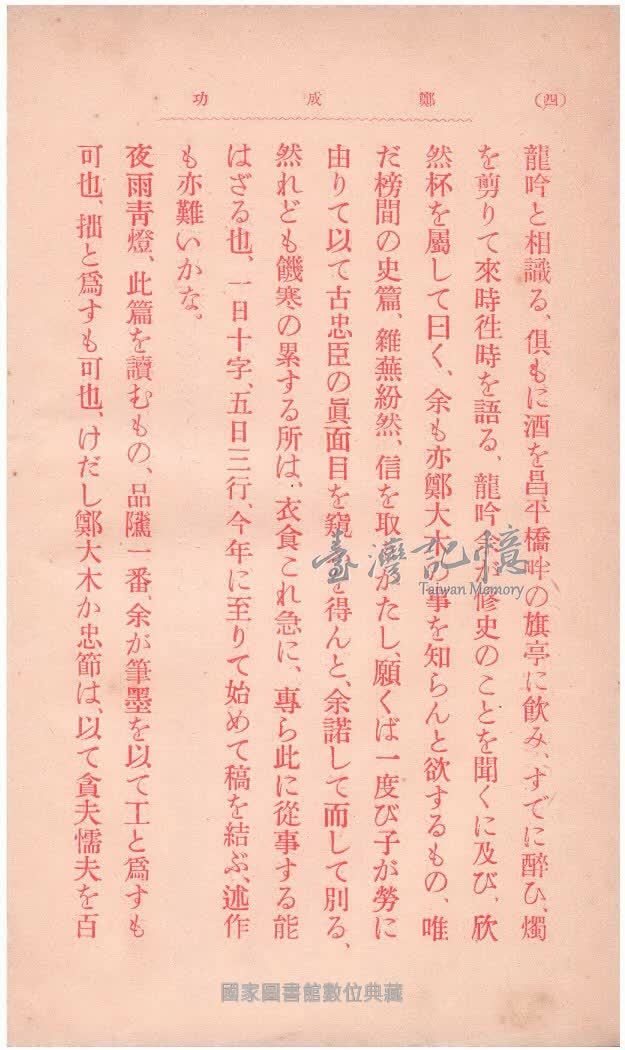 （四）
鄭成功
龍吟と相識る、倶もに酒を昌平橋畔の旗亭に飲み、すでに醉ひ、燭
を剪りて來時徃時を語る、龍吟余が修史のことを聞くに及び、欣
然杯を屬して曰く、余も亦鄭大木の事を知らんと欲するもの、唯
だ榜間の史篇、雜蕪紛然、信を取りがたし、願くば一度び子が勞に
由りて以て古忠臣の眞面目を窺を得んと、余諾して而して別る、
然れども饑寒の累する所は、衣食これ急に、專ら此に從事する能
はざる也、一日十字、五日三行、今年に至りて始めて稿を結ぶ、述作
も亦難いかな。
夜雨靑燈、此篇を讀むもの、品隲一番、余が筆墨を以て工と爲すも
可也、拙と爲すも可也、けだし鄭大木か忠節は、以て貪夫懦夫を百
臺灣記憶
Taiwan Memory
國家圖書館數位典藏